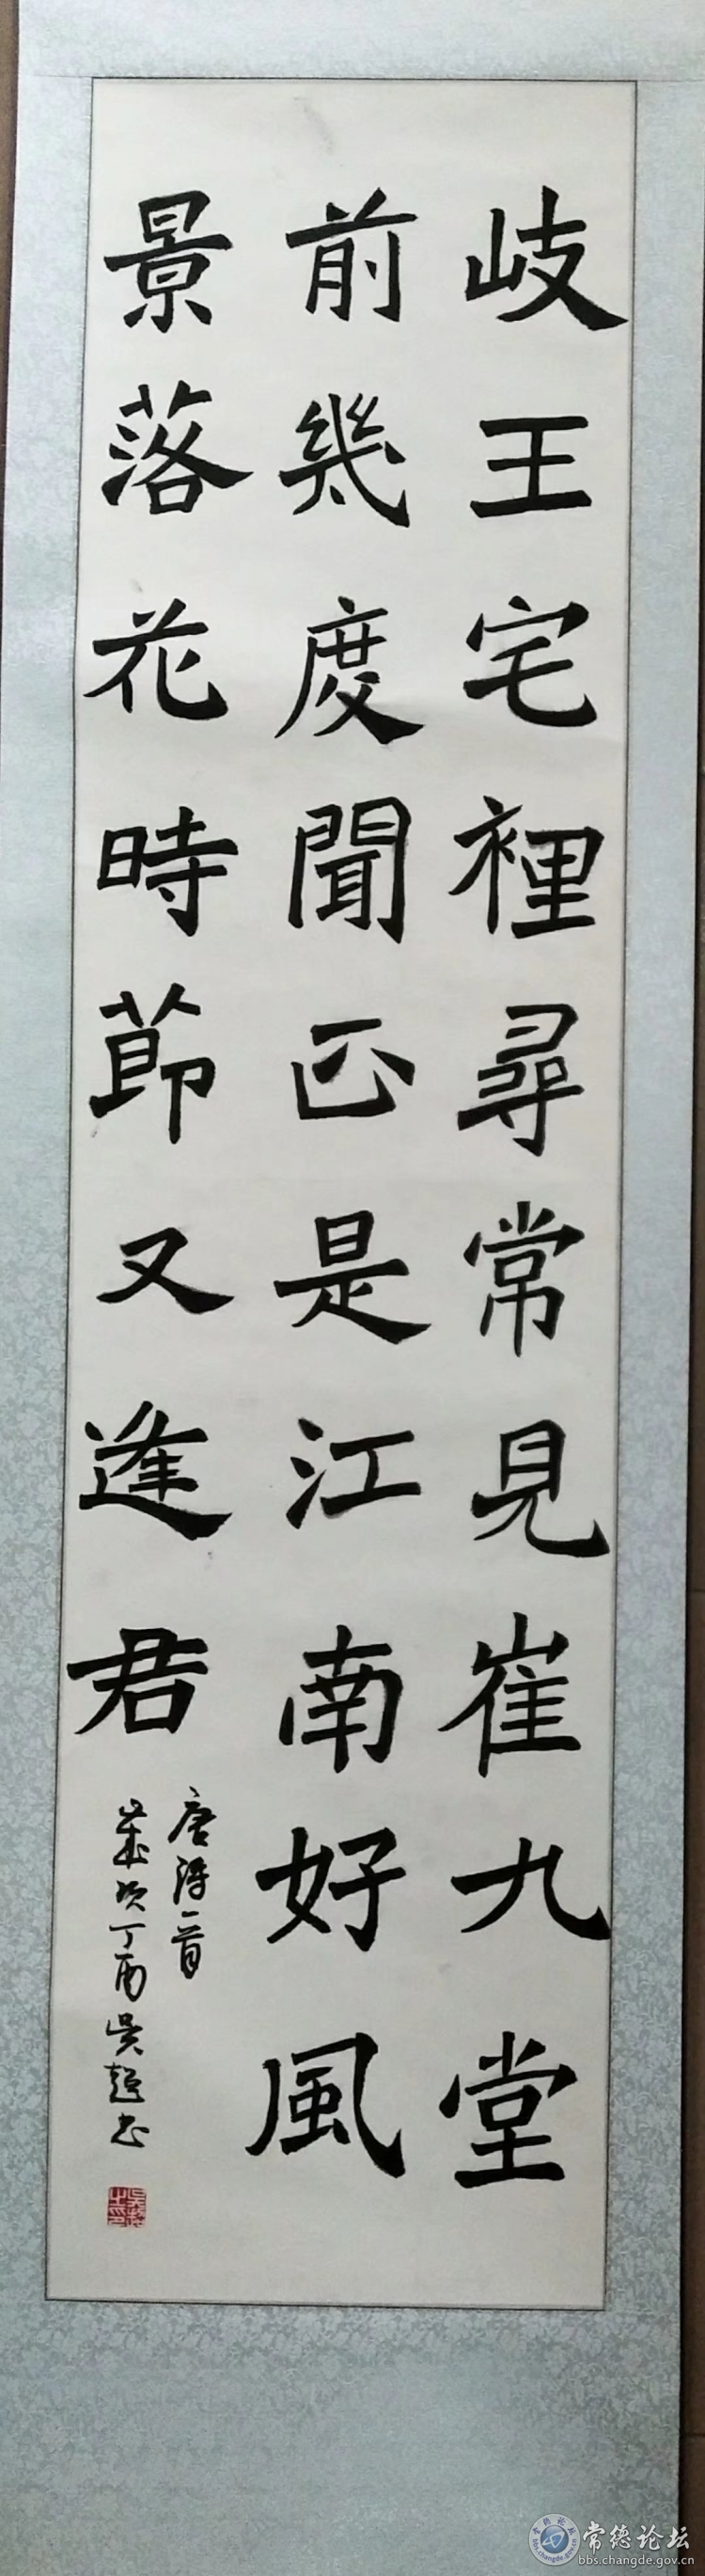 岐王宅裡尋常見崔九堂
前幾度聞正是江南好風
景落花時節又逢君
唐詩一首
歲次丁酉吳超書
常德论坛
bbs.changde.gov.cn